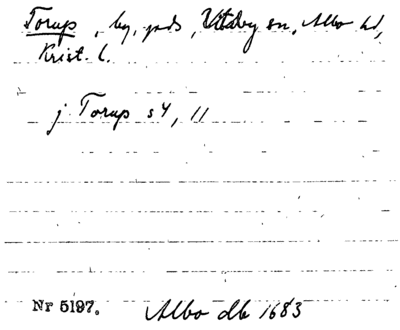 Torup, by, gods, Vitaby sn, Albo hd,
Krist. l.
j Torup s 4, 11
Nr 5197. Albo db 1683